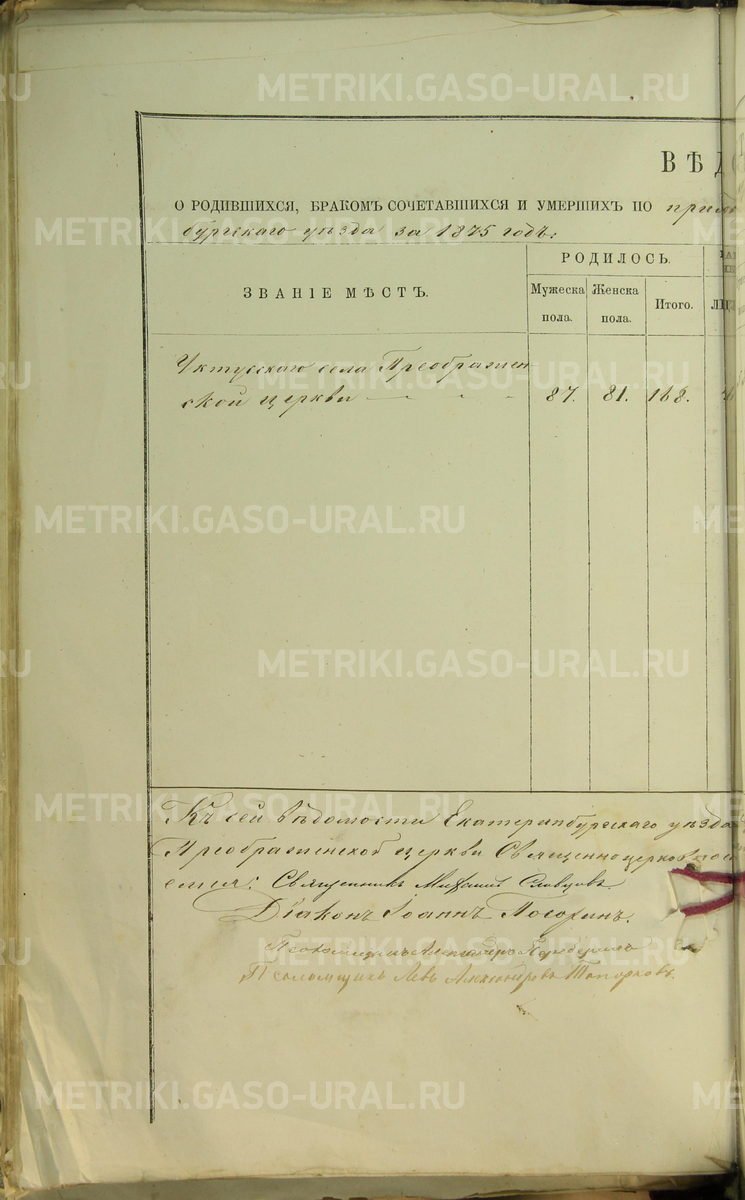 ВѢД
О РОДИВШИХСЯ, БРАКОМЪ СОЧЕТАВШИХСЯ И УМЕРШИХЪ ПО
бургскаго уѣзда за 1875 годъ:
ЗВАНІЕ МѢСТЪ.
РОДИЛОСЬ.
Мужеска пола.
Женска пола.
Итого.
Уктусскаго села Преображен-
ской церкви
87. 81. 168.
Къ сей вѣдомости Екатеринбургскаго уѣзда
Преображенской церкви Священноцерковно
Священникъ Михаилъ Словцовъ
Діаконъ Іоаннъ Посохинъ.
Псаломщикъ
Псаломщикъ Левъ Александровъ Топорковъ.
METRIKI.GASO-URAL.RU